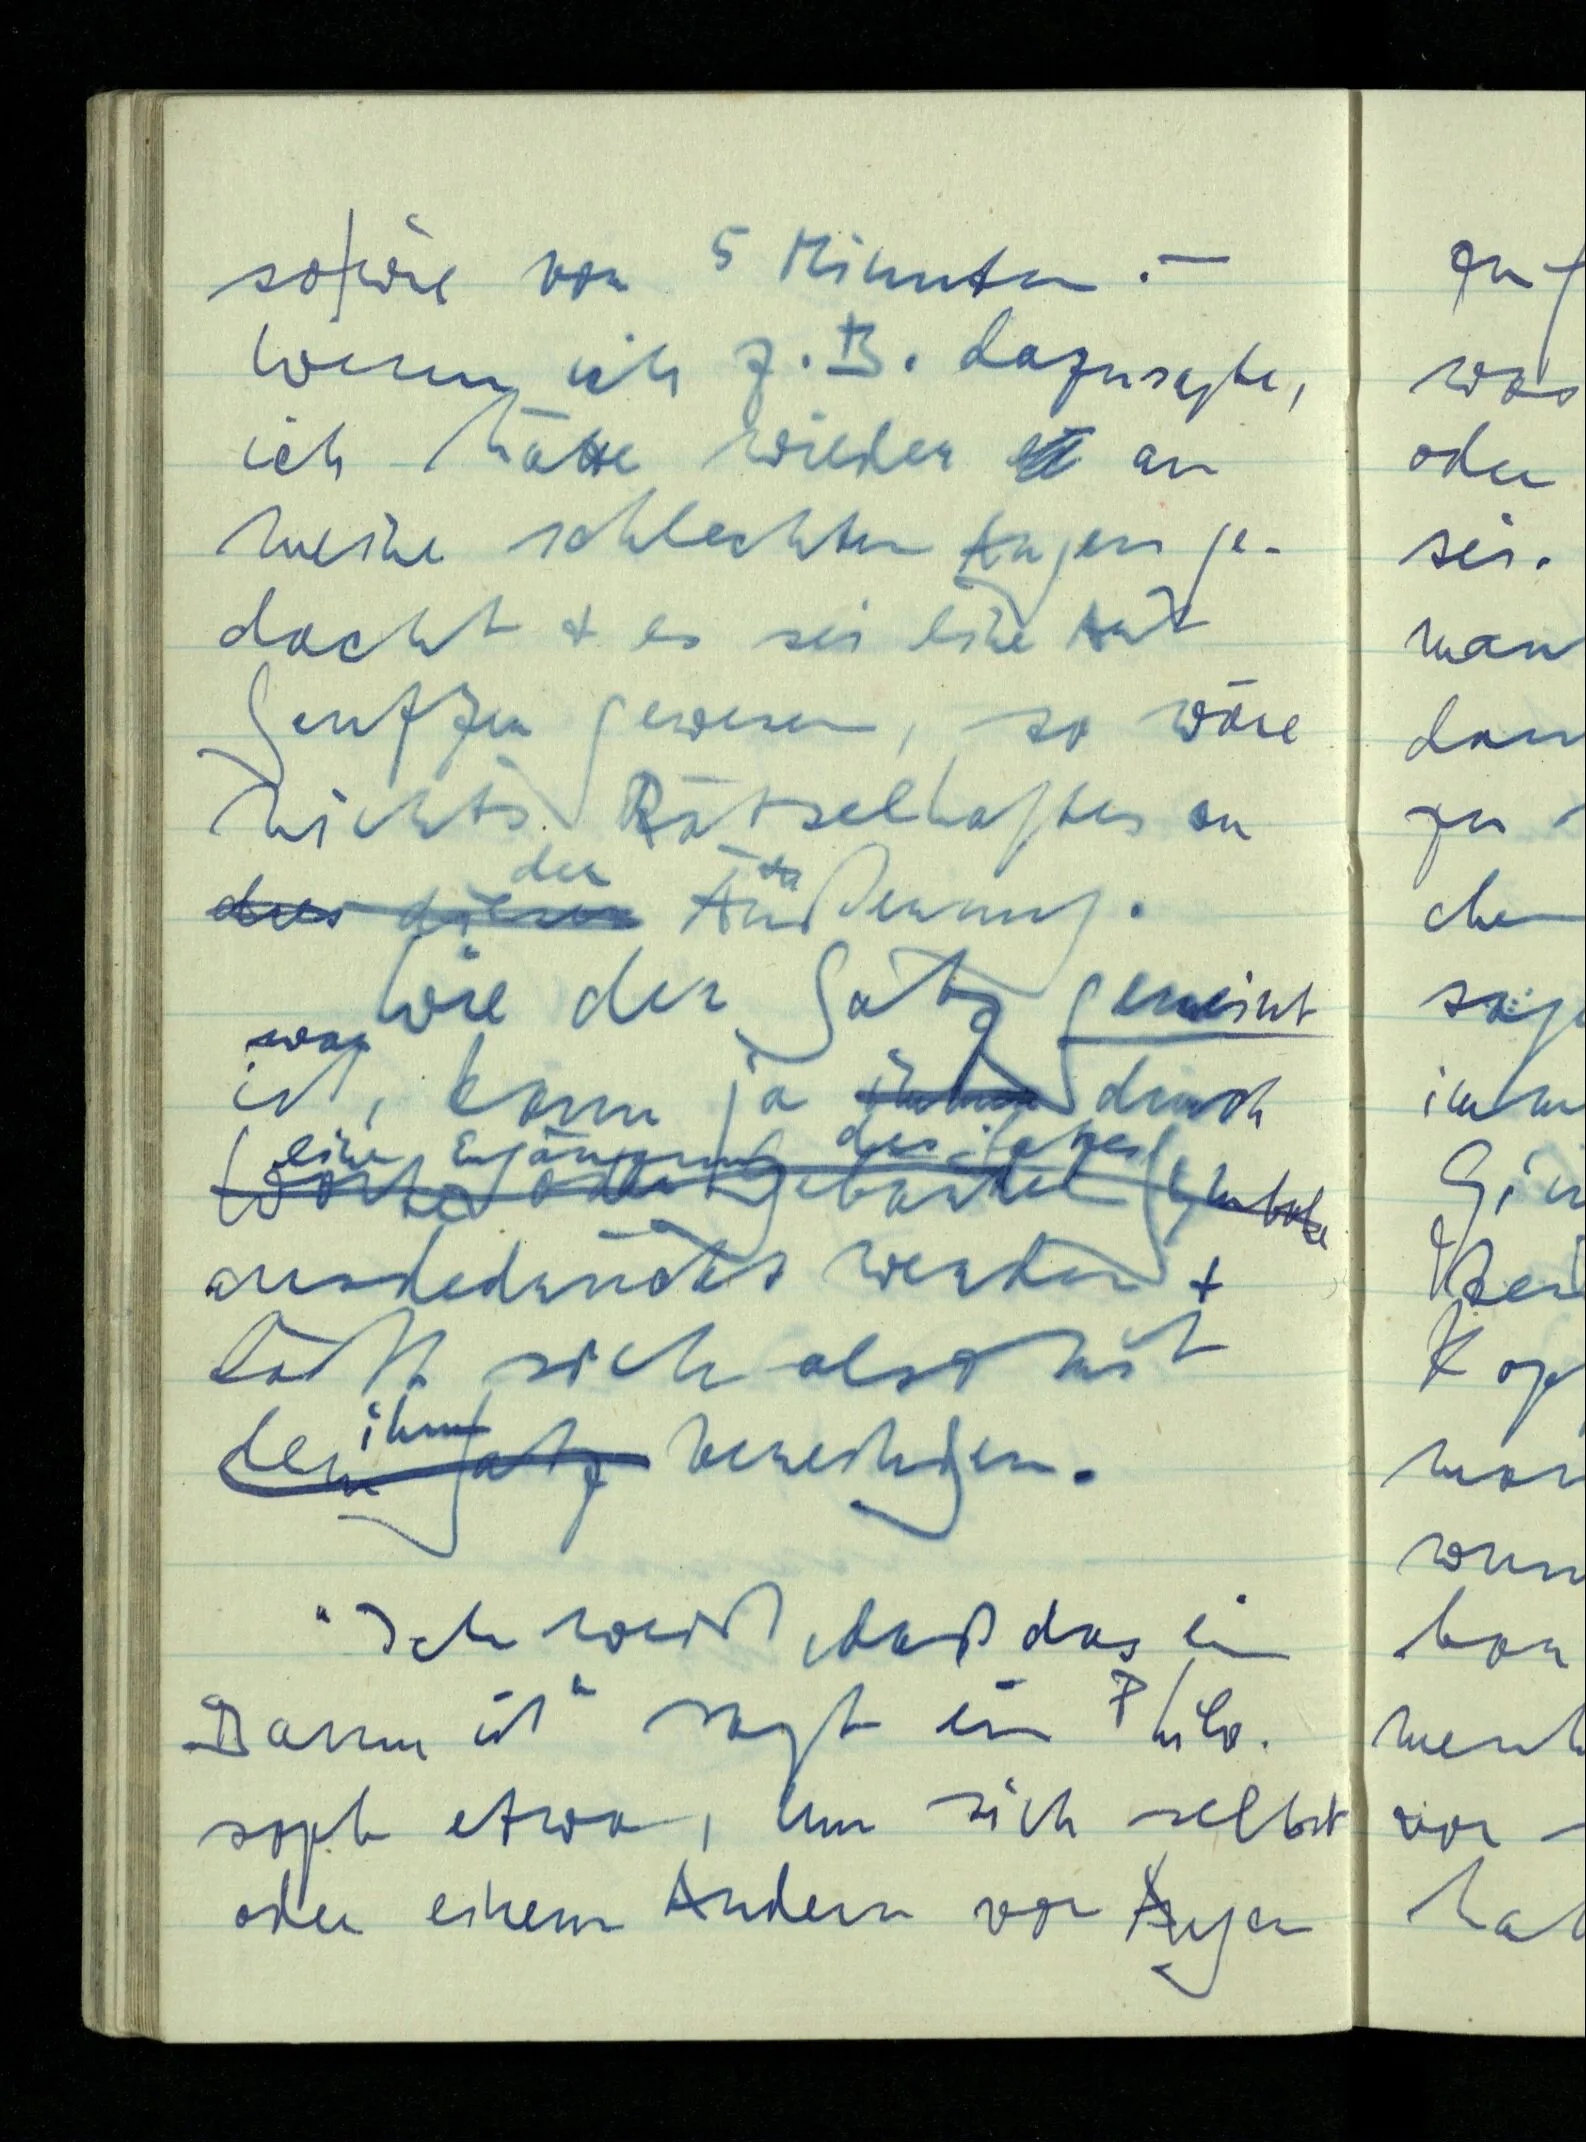 so/wie vor 5 Minuten. —
Wenn ich z.B. dazusagte,
ich hätte wieder an
meine schlechten Augen ge-
dacht + es sei eine Art
Seufzen gewesen, so wäre
nichts Rätselhaftes an
der
dies dieser Äußerung.
Wie der Satz gemeint
war
ist, kann ja durch
eine Ergänzung des Satzes
Worte oder Gebärden Symbole
ausdedrückt werden +
läßt sich also mit
ihm
dem Satz vereinigen.
"Ich weiß, daß das ein
Baum ist" sagt ein Philo-
soph etwa, um sich selbst
oder einem Andern vor Augen
zu
was
oder
sei.
man
dan
zu
che
sage
imm
Kop
wen
hat